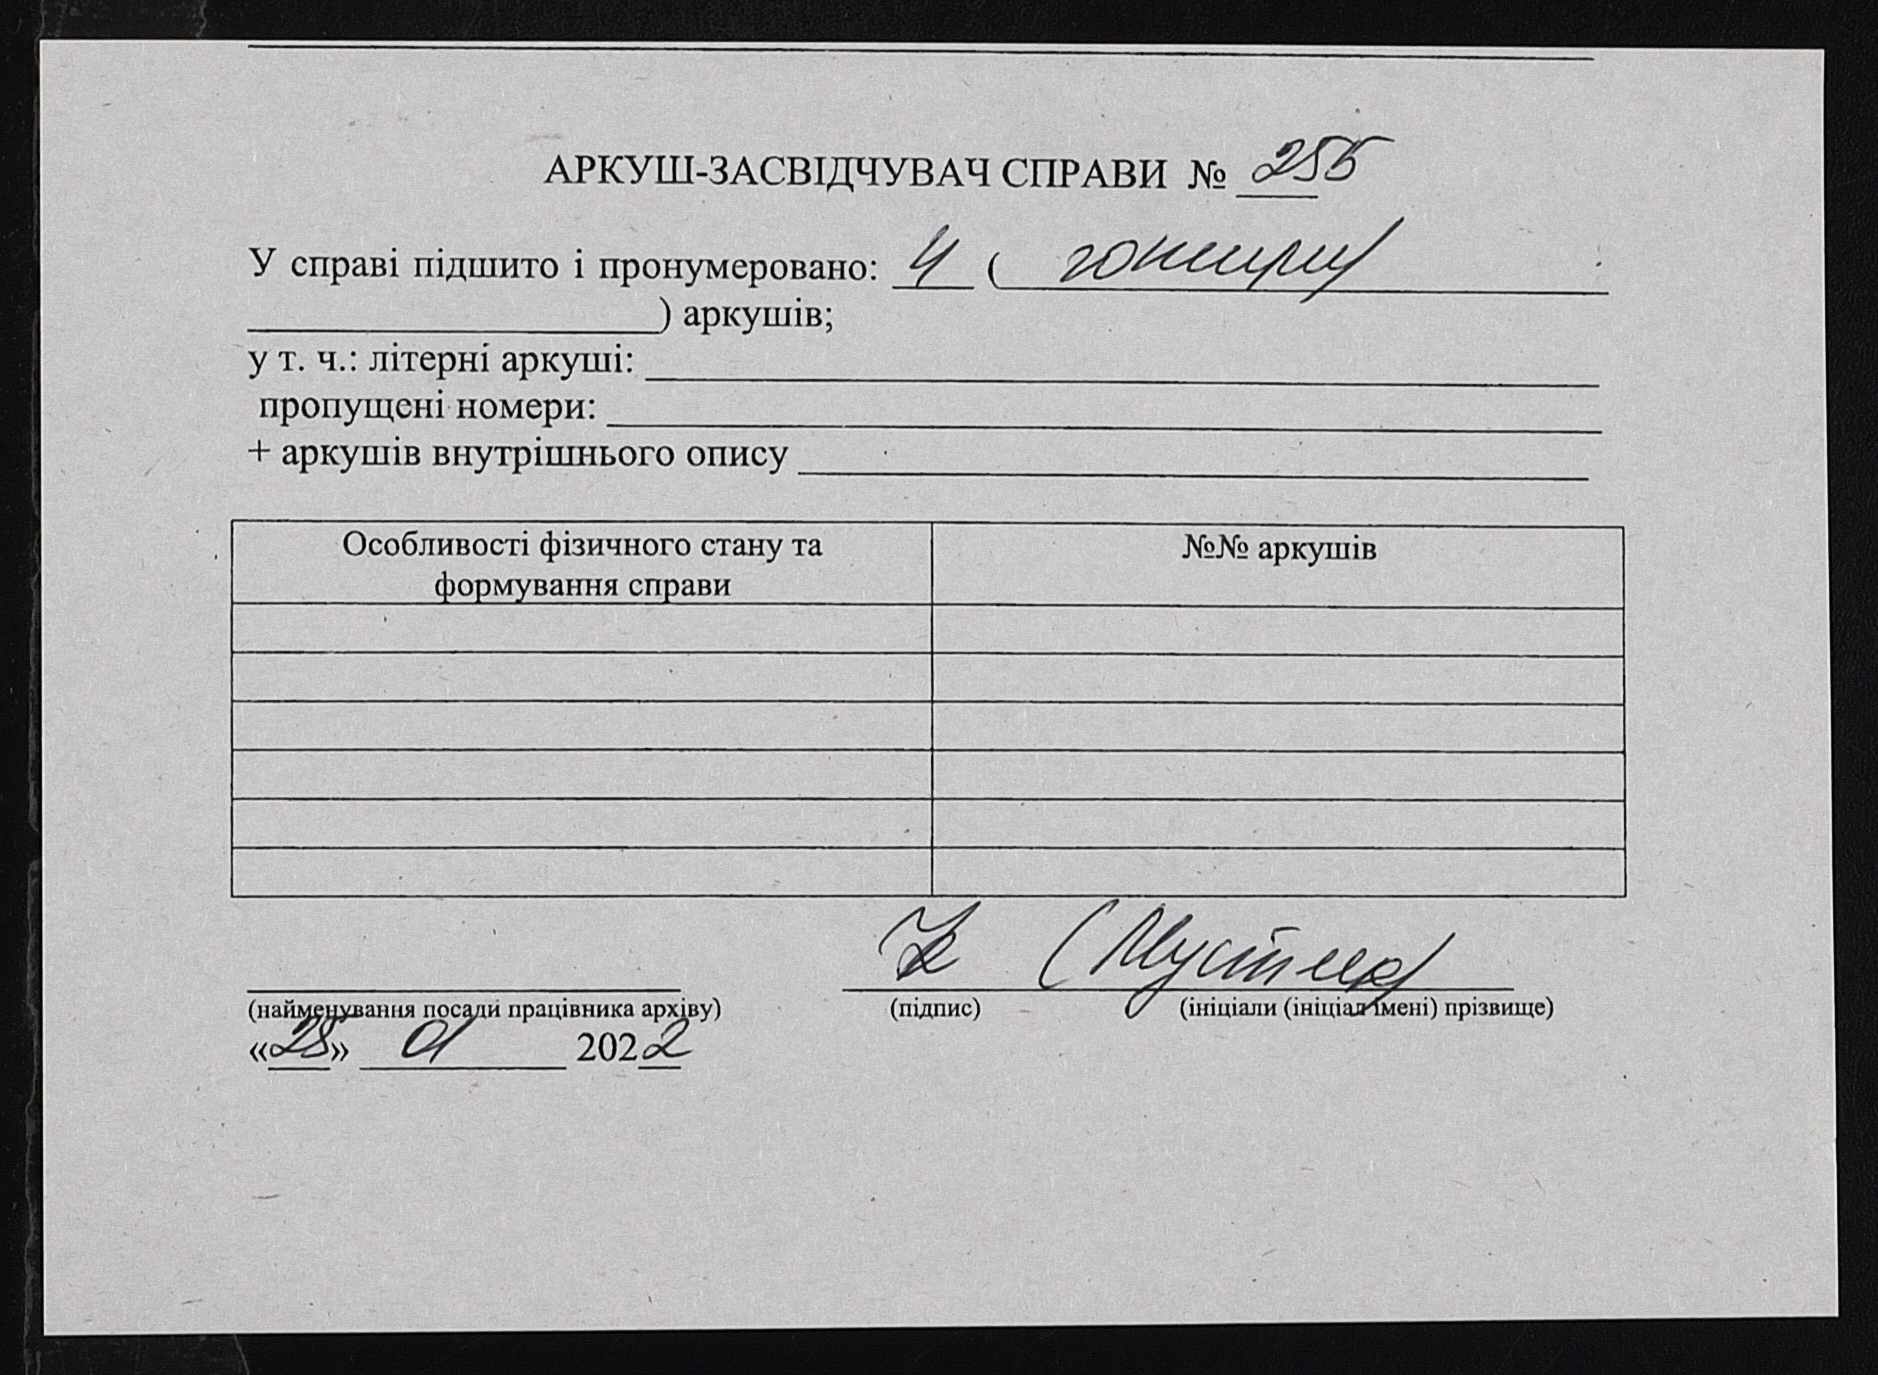 АРКУШ-ЗАСВІДЧУВАЧ СПРАВИ № 255
У справі підшито і пронумеровано: 4 ( чотири
) аркушів;
у т. ч.: літерні аркуші:
пропущені номери:
+ аркушів внутрішнього опису
Особливості фізичного стану та
формування справи
№№ аркушів
(найменування посади працівника архіву)
(підпис)
(ініціали (ініціал імені) прізвище)
«28» 01 2022